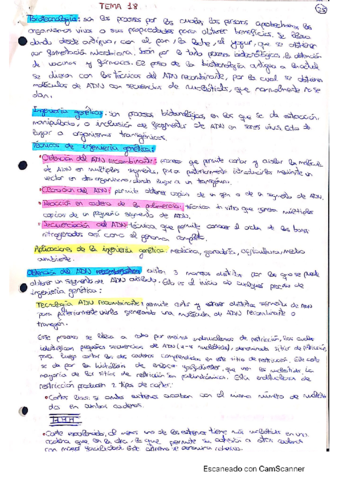 TEMA 18
Biotecnología: son los procesos por los cuales, las personas aprovechan los
organismos vivos o sus propiedades para obtener beneficios. Se lleva
dando desde antiguo, con el pan, la leche, el yogur, que se obtienen
por fermentación
de vacunas y químicos. El paso de la biotecnología antigua a la actual
se divisa con las técnicas del ADN recombinante, por la cual se obtienen
moléculas de ADN con secuencias de nucleótidos, que normalmente no se
dan.
Ingeniería genética: son procesos biotecnológicos, en los que se da extracción,
manipulación, o inclusión de fragmentos de ADN en seres vivos. Esto da
lugar a organismos transgénicos.
Técnicas de ingeniería genética:
• Obtención del ADN recombinante: proceso que permite cortar y aislar la molécula
de ADN en múltiples segmentos, para posteriormente introducirlos mediante un
vector en otro organismo, dando lugar a un transgénico.
• Clonación del ADN: permite obtener copias de un gen o de un segmento de ADN.
• Reacción en cadena de la polimerasa: técnica in vitro que genera múltiples
copias de un pequeño segmento de ADN.
• Secuenciación del ADN: técnica, que permite conocer el orden de las bases
nitrogenadas así como el genoma completo.
Aplicaciones de la ingeniería genética: medicina, ganadería, agricultura, medio
ambiente.
Obtención del ADN recombinante: existen 3 maneras distintas por las que se puede
obtener un segmento de ADN aislado. Esto es el inicio de cualquier proceso de
ingeniería genética:
Tecnología ADN recombinante: permite cortar y separar distintos segmentos de ADN
para posteriormente unirlos generando una molécula de ADN recombinante o
transgén.
Este proceso se lleva a cabo por enzimas endonucleasas de restricción, las cuales
identifican pequeñas secuencias de ADN (4-8 nucleótidos), denominado sitio de restricción
para luego cortar las dos cadenas comprendidas en este sitio de restricción. Este corte
se da por la hidrólisis de enlaces fosfodiéster, que une los nucleótidos. La
mayoría de los sitios de restricción son palindrómicos. Estas endonucleasas de
restricción producen 2 tipos de cortes:
• Cortes lisos: si ambos extremos acaban con el mismo número de nucleóti
dos en ambas cadenas.
• Corte escalonado: al menos uno de los extremos tiene más nucleótidos en una
cadena que en la otra. Lo que permite su adhesión a otra cadena
con mayor facilidad. Este extremo se denomina cohesivo.
Escaneado con CamScanner